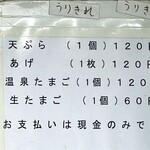 うりきれ うりき
天ぷら （1個）120
あげ （1枚）120
温泉たまご（1個）120
生たまご （1個）60
お支払いは現金のみで